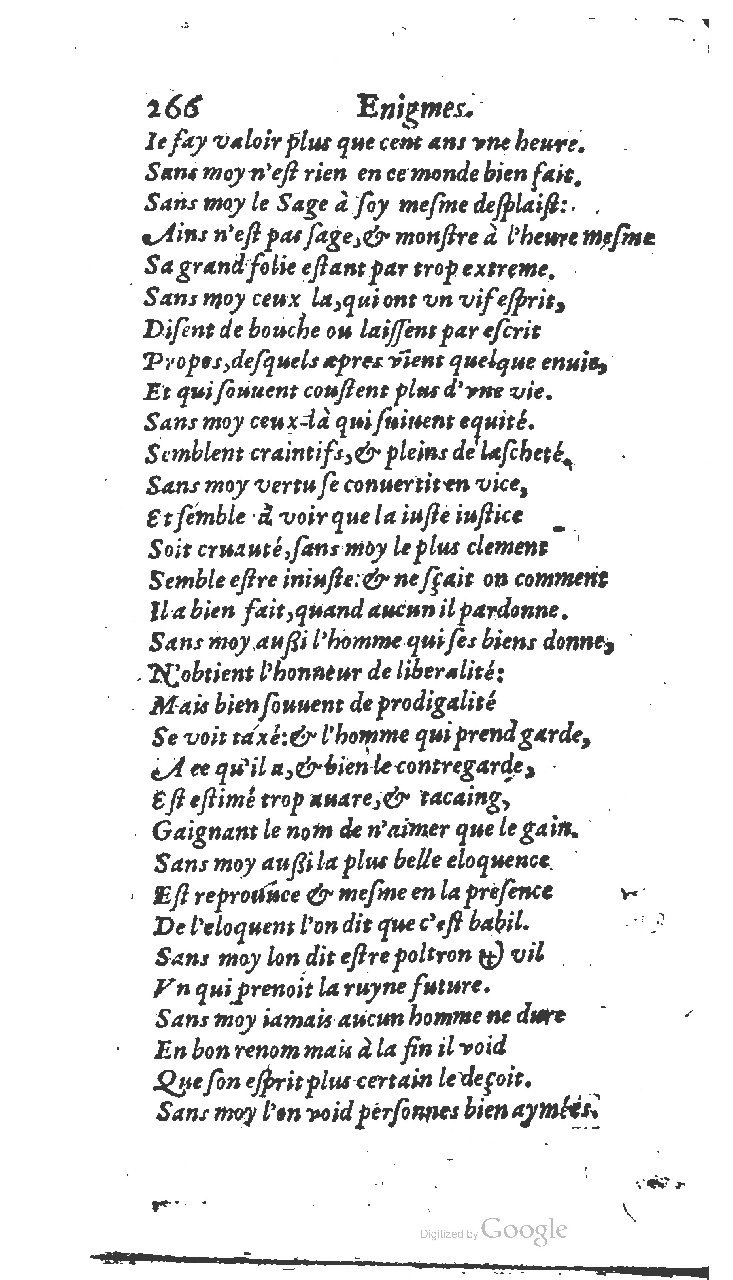 266 Enigmes.
Ie fay valoir plus que cent ans vne heure.
Sans moy n'eſt rien en ce monde bien fait.
Sans moy le Sage à ſoy meſme deſplaiſt:
Ains n'eſt pas ſage, & monſtre à l'heure meſme
Sa grand folie eſtant par trop extreme.
Sans moy ceux la, qui ont vn vif eſprit,
Diſent de bouche ou laiſſent par eſcrit
Propos, deſquels apres vient quelque enuie,
Et qui ſouuent couſtent plus d'vne vie.
Sans moy ceux-là qui ſuiuent equité.
Semblent craintifs, & pleins de laſcheté,
Sans moy vertu ſe conuertit en vice,
Et ſemble à voir que la iuſte iuſtice
Soit cruauté, ſans moy le plus clement
Semble eſtre iniuſte: & ne ſçait on comment
Il a bien fait, quand aucun il pardonne.
Sans moy auſſi l'homme qui ſes biens donne,
N'obtient l'honneur de liberalité:
Mais bien ſouuent de prodigalité
Se voit taxé: & l'homme qui prend garde,
A ce qu'il a, & bien le contregarde,
Eſt eſtimé trop auare, & tacaing,
Gaignant le nom de n'aimer que le gain.
Sans moy auſſi la plus belle eloquence
Eſt reprouuce & meſme en la preſence
De l'eloquent l'on dit que c'eſt babil.
Sans moy lon dit eſtre poltron & vil
Vn qui prenoit la ruyne future.
Sans moy iamais aucun homme ne dure
En bon renom mais à la fin il void
Que ſon eſprit plus certain le deçoit.
Sans moy l'on void perſonnes bien aymées.
Digitized by Google